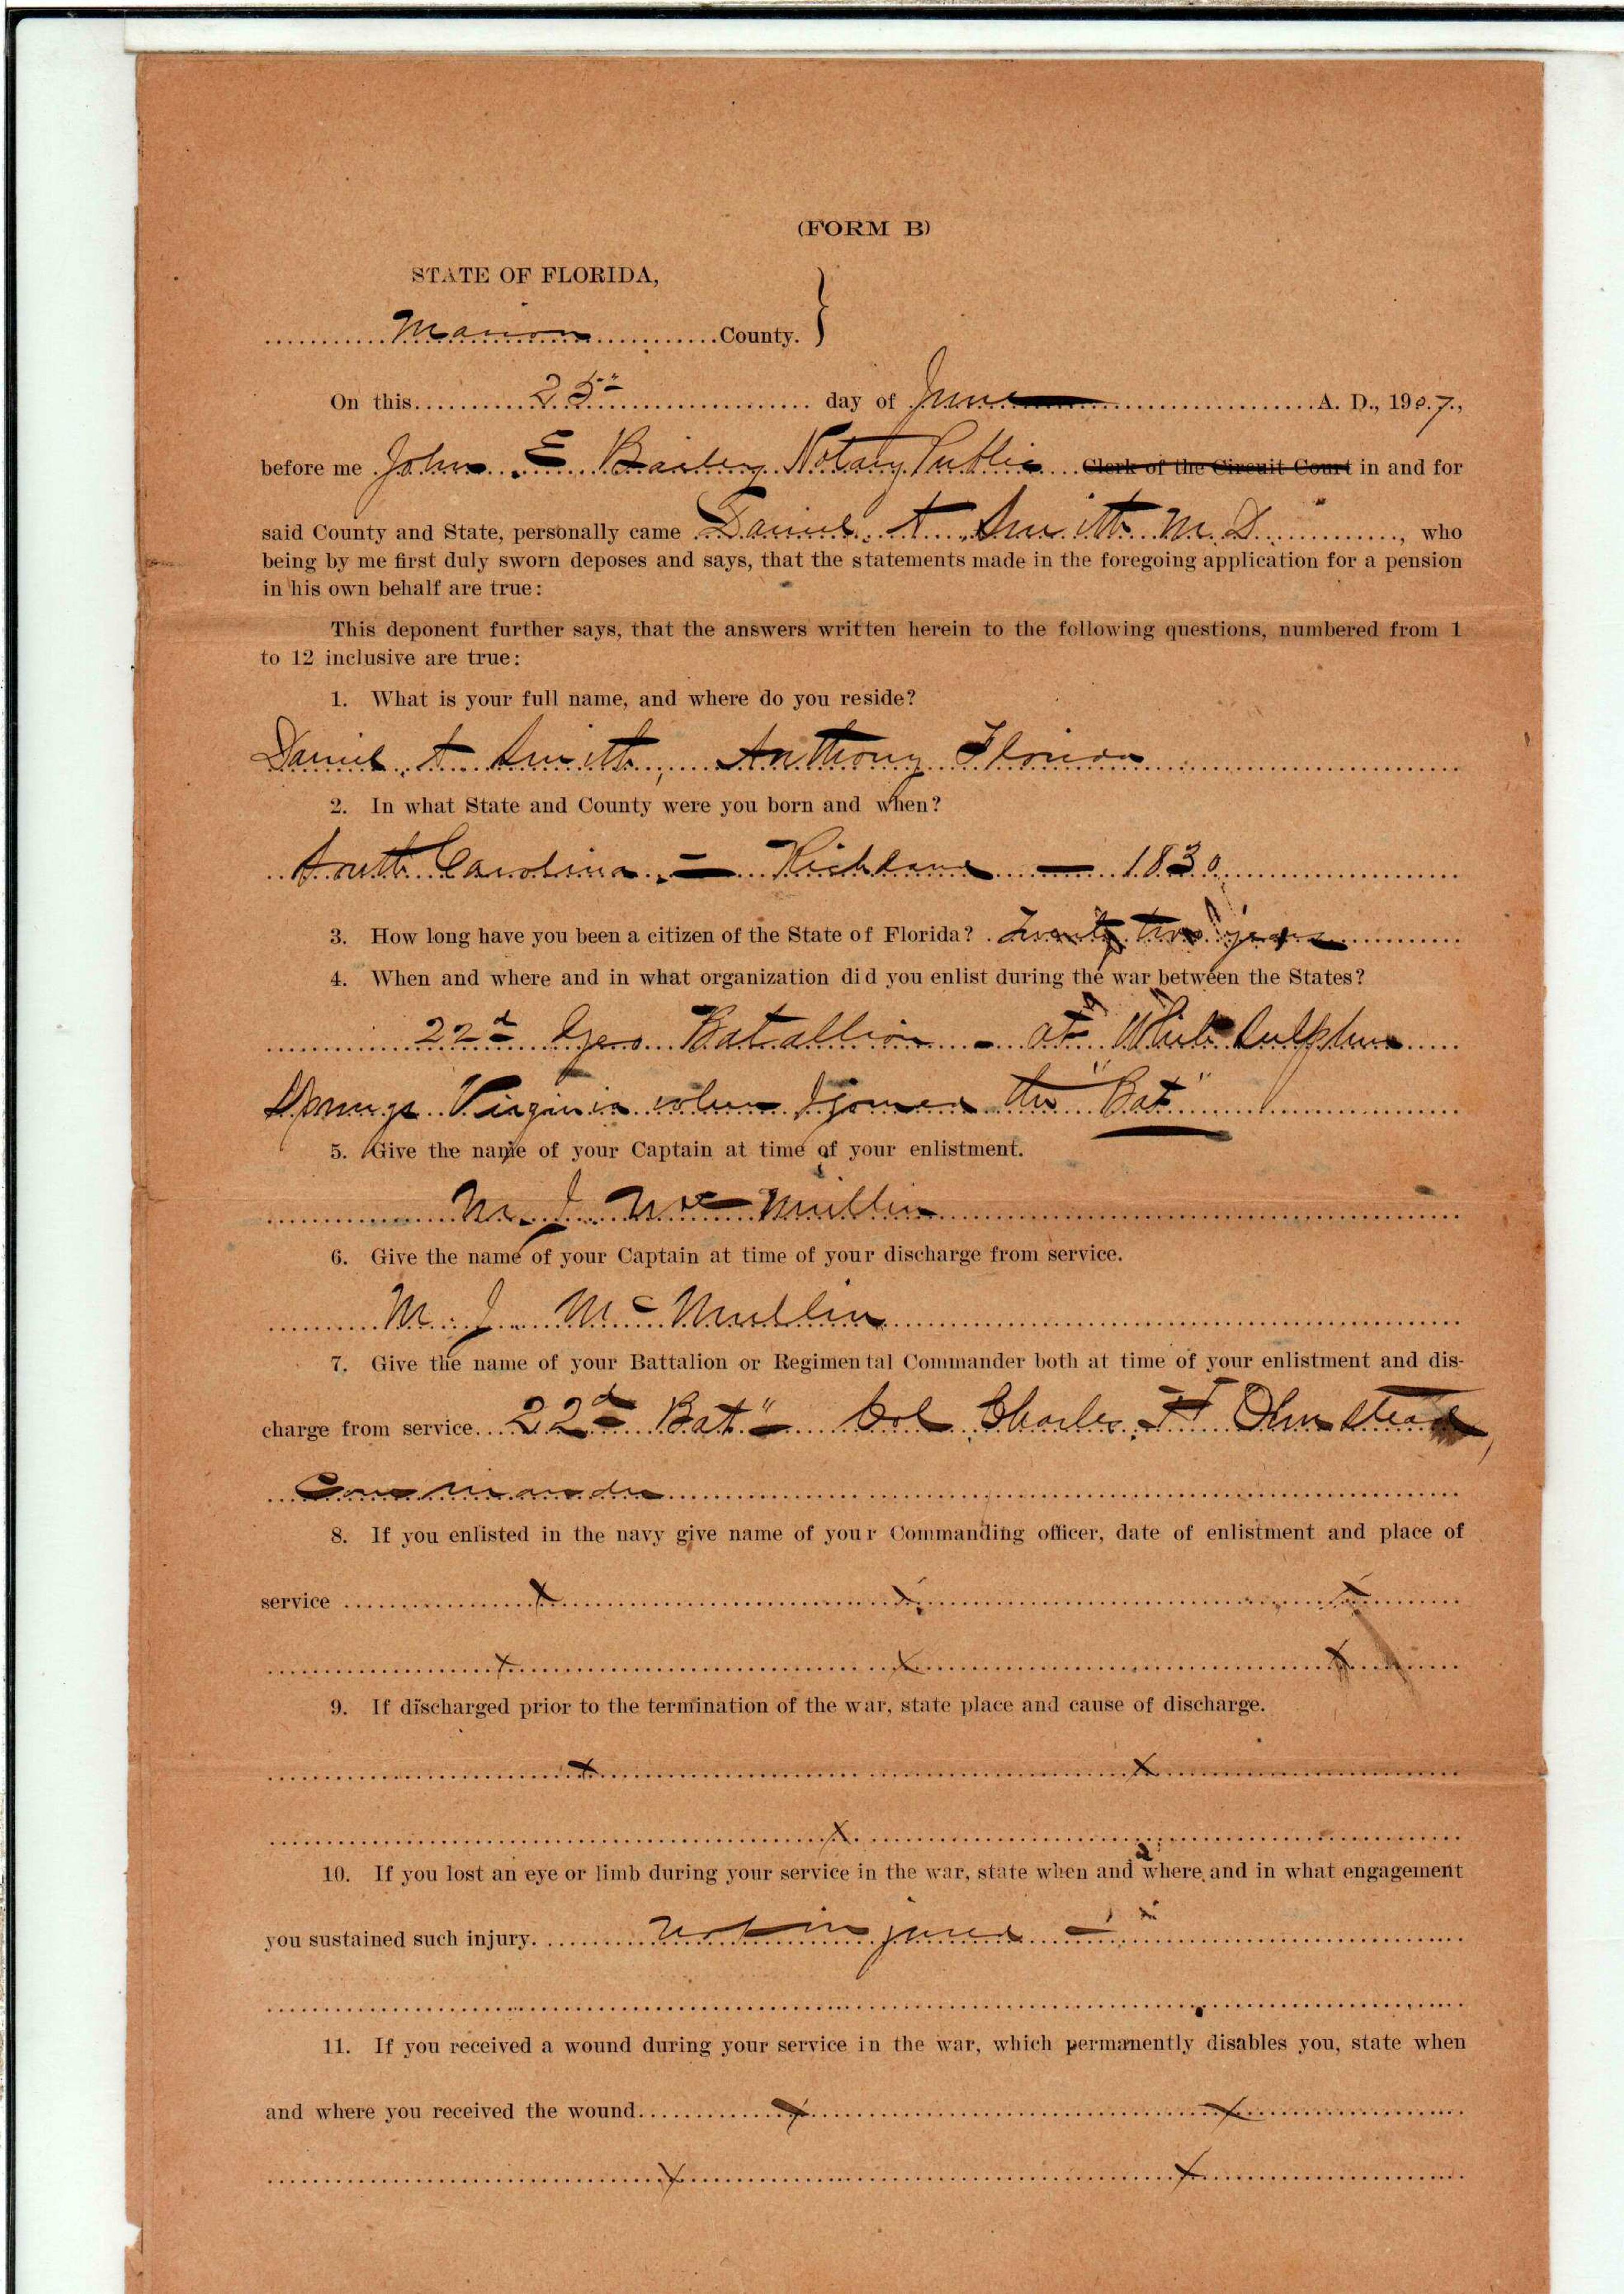 (FORM B)
STATE OF FLORIDA,
Marion County.
On this 25" day of June A. D., 1907.,
before me John E Bailey Notary Public Clerk of the Circuit Court in and for
said County and State, personally came Daniel A Smith M.D., who
being by me first duly sworn deposes and says, that the statements made in the foregoing application for a pension
in his own behalf are true:
This deponent further says, that the answers written herein to the following questions, numbered from 1
to 12 inclusive are true:
1. What is your full name, and where do you reside?
Daniel A Smith, Anthony Florida
2. In what State and County were you born and when?
South Carolina - Richland - 1830
3. How long have you been a citizen of the State of Florida? Twenty two years
4. When and where and in what organization did you enlist during the war between the States?
22d Geo Batallion - at White Sulphur
Springs Virginia when I joined the "Bat"
5. Give the name of your Captain at time of your enlistment.
M. J. Mc Mullin
6. Give the name of your Captain at time of your discharge from service.
M. J. Mc Mullin
7. Give the name of your Battalion or Regimental Commander both at time of your enlistment and dis-
charge from service. 22d Bat" - Col Charles H Olmstead,
Commander
8. If you enlisted in the navy give name of your Commanding officer, date of enlistment and place of
service x x x
x x x
9. If discharged prior to the termination of the war, state place and cause of discharge.
x x
x
10. If you lost an eye or limb during your service in the war, state when and where and in what engagement
you sustained such injury. not injured -
11. If you received a wound during your service in the war, which permanently disables you, state when
and where you received the wound. x x
x x